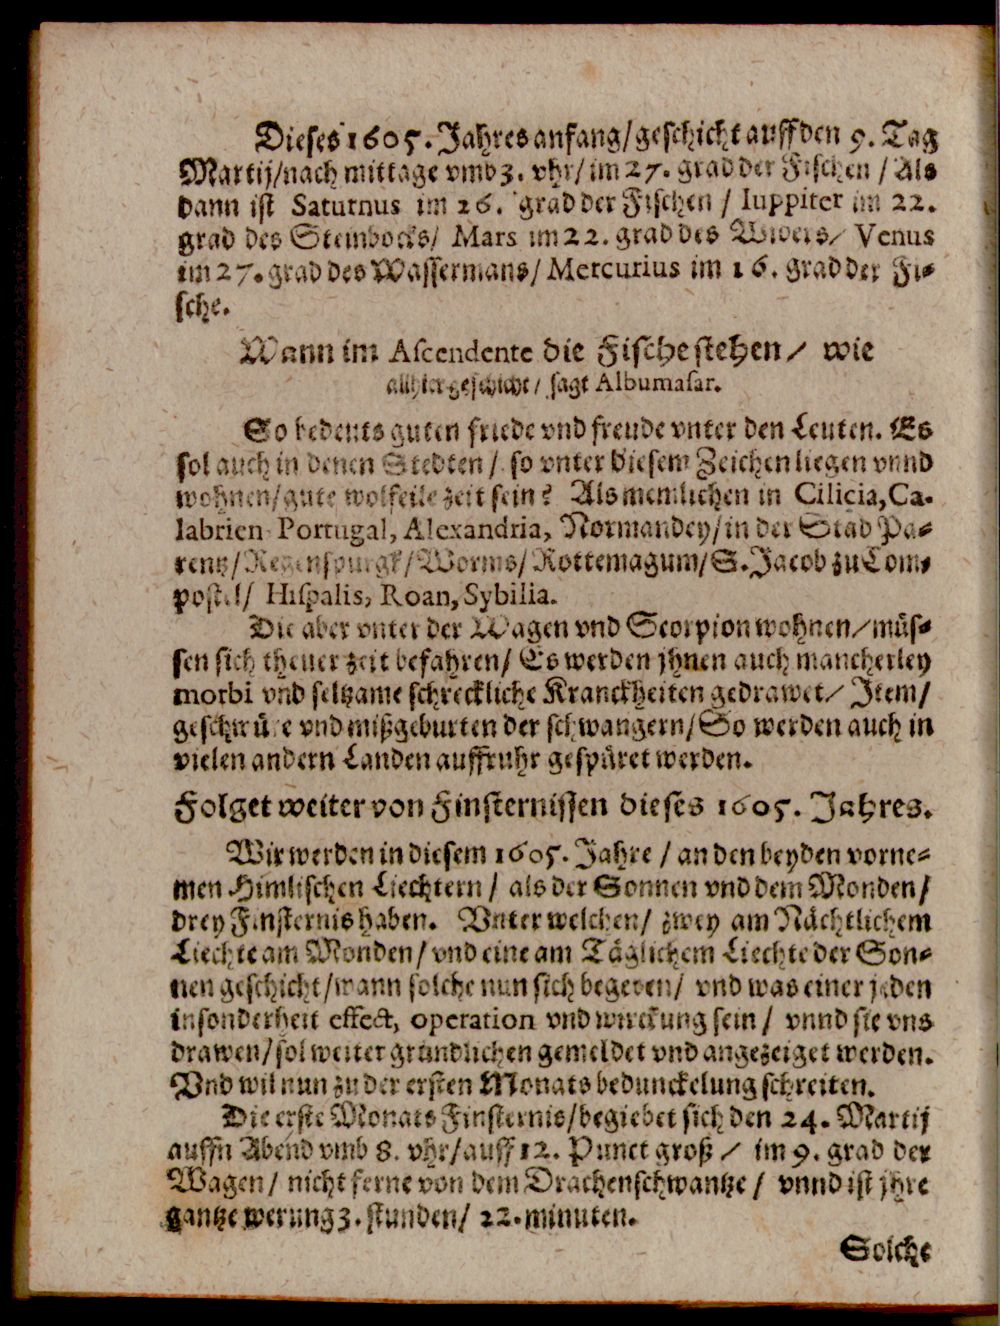 Dieses 1605. Jahres anfang/geschicht auff den 9. Tag
Martij/nach mittage vmb 3. vhr/im 27. grad der Fischen / Als
dann ist Saturnus im 26. grad der Fischen / Iuppiter im 22.
grad des Steinbocks/ Mars im 22. grad des Widers/ Venus
im 27. grad des Wassermans/ Mercurius im 16. grad der Fi⸗
sche.
Wann im Ascendente die Fische stehen/ wie
allhier geschicht/ sagt Albumasar.
So bedeuts guten friede vnd freude vnter den Leuten. Es
sol auch in denen Stedten/ so vnter diesem Zeichen liegen vnnd
wohnen/gute wolfeile zeit sein? Als nemlichen in Cilicia, Ca-
labrien Portugal, Alexandria, Normandey/in der Stad Pa⸗
rentz/Regenspurgk/Worms/Rottemagum/S. Jacob zu Com⸗
postel/ Hispalis, Roan, Sybilia.
Die aber vnter der Wagen vnd Scorpion wohnen/müs⸗
sen sich thewer zeit befahren/ Es werden jhnen auch mancherley
morbi vnd seltzame schreckliche Kranckheiten gedrawet/ Item/
geschwüre vnd mißgeburten der schwangern/So werden auch in
vielen andern Landen auffruhr gespüret werden.
Folget weiter von Finsternissen dieses 1605. Jahres.
Wir werden in diesem 1605. Jahre / an den beyden vorne⸗
men Himlischen Liechtern / als der Sonnen vnd dem Monden/
drey Finsternis haben. Vnter welchen/ zwey am Nächtlichem
Liechte am Monden/ vnd eine am Täglichem Liechte der Son⸗
nen geschicht/wann solche nun sich begeben/ vnd was einer jeden
insonderheit effect, operation vnd wirckung sein / vnnd sie vns
drawen/sol weiter gründlichen gemeldet vnd angezeiget werden.
Vnd wil nun zu der ersten Monats bedunckelung schreiten.
Die erste Monats Finsternis/begiebet sich den 24. Martij
auffn Abend vmb 8. vhr/auff 12. Punct groß / im 9. grad der
Wagen/ nicht ferne von dem Drachenschwantze / vnnd ist jhre
gantze werung 3. stunden/ 22. minuten.
Solche